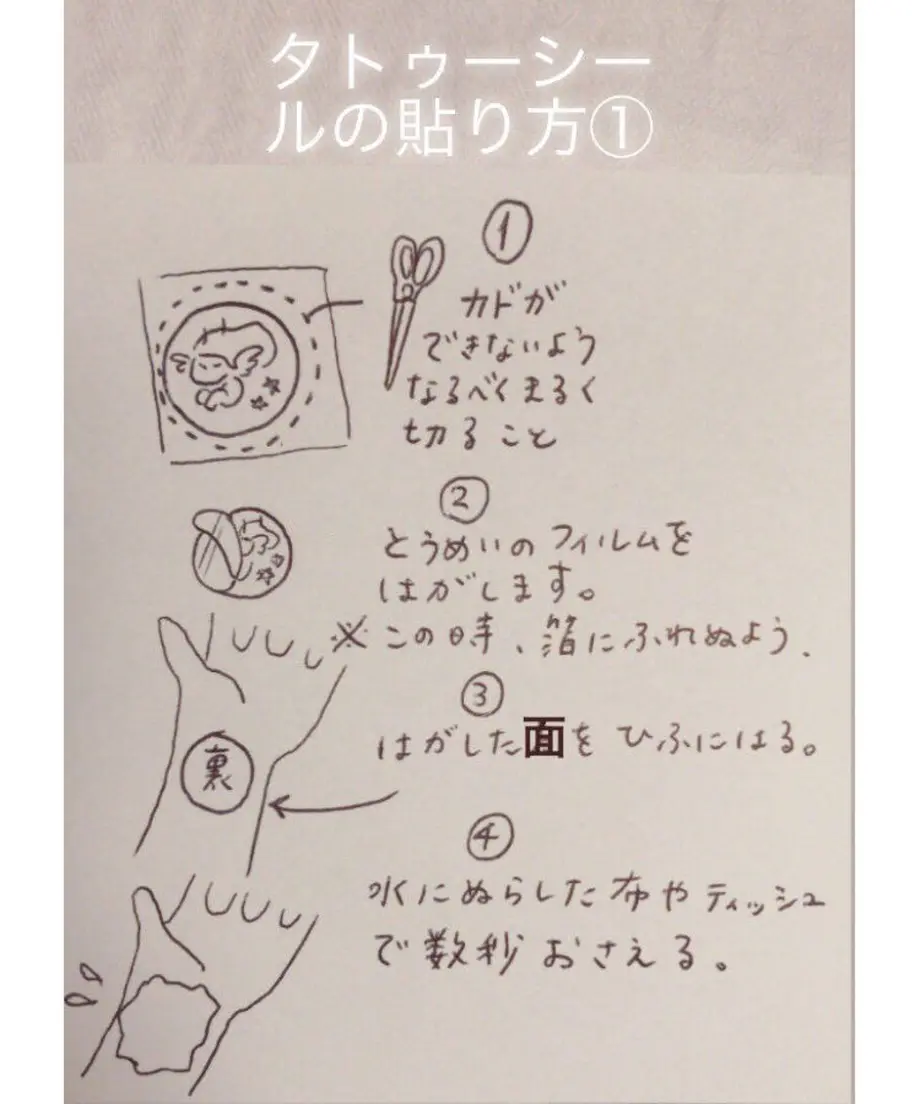 タトゥーシー
ルの貼り方①
①
カドが
できないよう
なるべくまるく
切ること
②
とうめいのフィルムを
はがします。
※この時、箔にふれぬよう.
③
はがした面をひふにはる。
裏
④
水にぬらした布やティッシュ
で数秒おさえる。